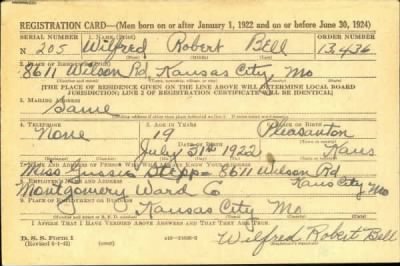 REGISTRATION CARD—(Men born on or after January 1, 1922 and on or before June 30, 1924)
SERIAL NUMBER 1. NAME (Print) ORDER NUMBER
N 205 Wilfred Robert Bell 13,436
2. PLACE OF RESIDENCE (Print)
8611 Wilson Rd Kansas City Mo
[THE PLACE OF RESIDENCE GIVEN ON THE LINE ABOVE WILL DETERMINE LOCAL BOARD
JURISDICTION; LINE 2 OF REGISTRATION CERTIFICATE WILL BE IDENTICAL]
3. MAILING ADDRESS
Same
4. TELEPHONE 5. AGE IN YEARS 6. PLACE OF BIRTH
None 19 Pleasanton
DATE OF BIRTH
July 31st 1922 Kans
7. NAME AND ADDRESS OF PERSON WHO WILL ALWAYS KNOW YOUR ADDRESS
Miss Jussie Stepp 8611 Wilson Rd
8. EMPLOYER'S NAME AND ADDRESS Kans City Mo
Montgomery Ward Co
9. PLACE OF EMPLOYMENT OR BUSINESS
Kansas City Mo
I AFFIRM THAT I HAVE VERIFIED ABOVE ANSWERS AND THAT THEY ARE TRUE.
D. S. S. Form 1
(Revised 6-1-42) Wilfred Robert Bell